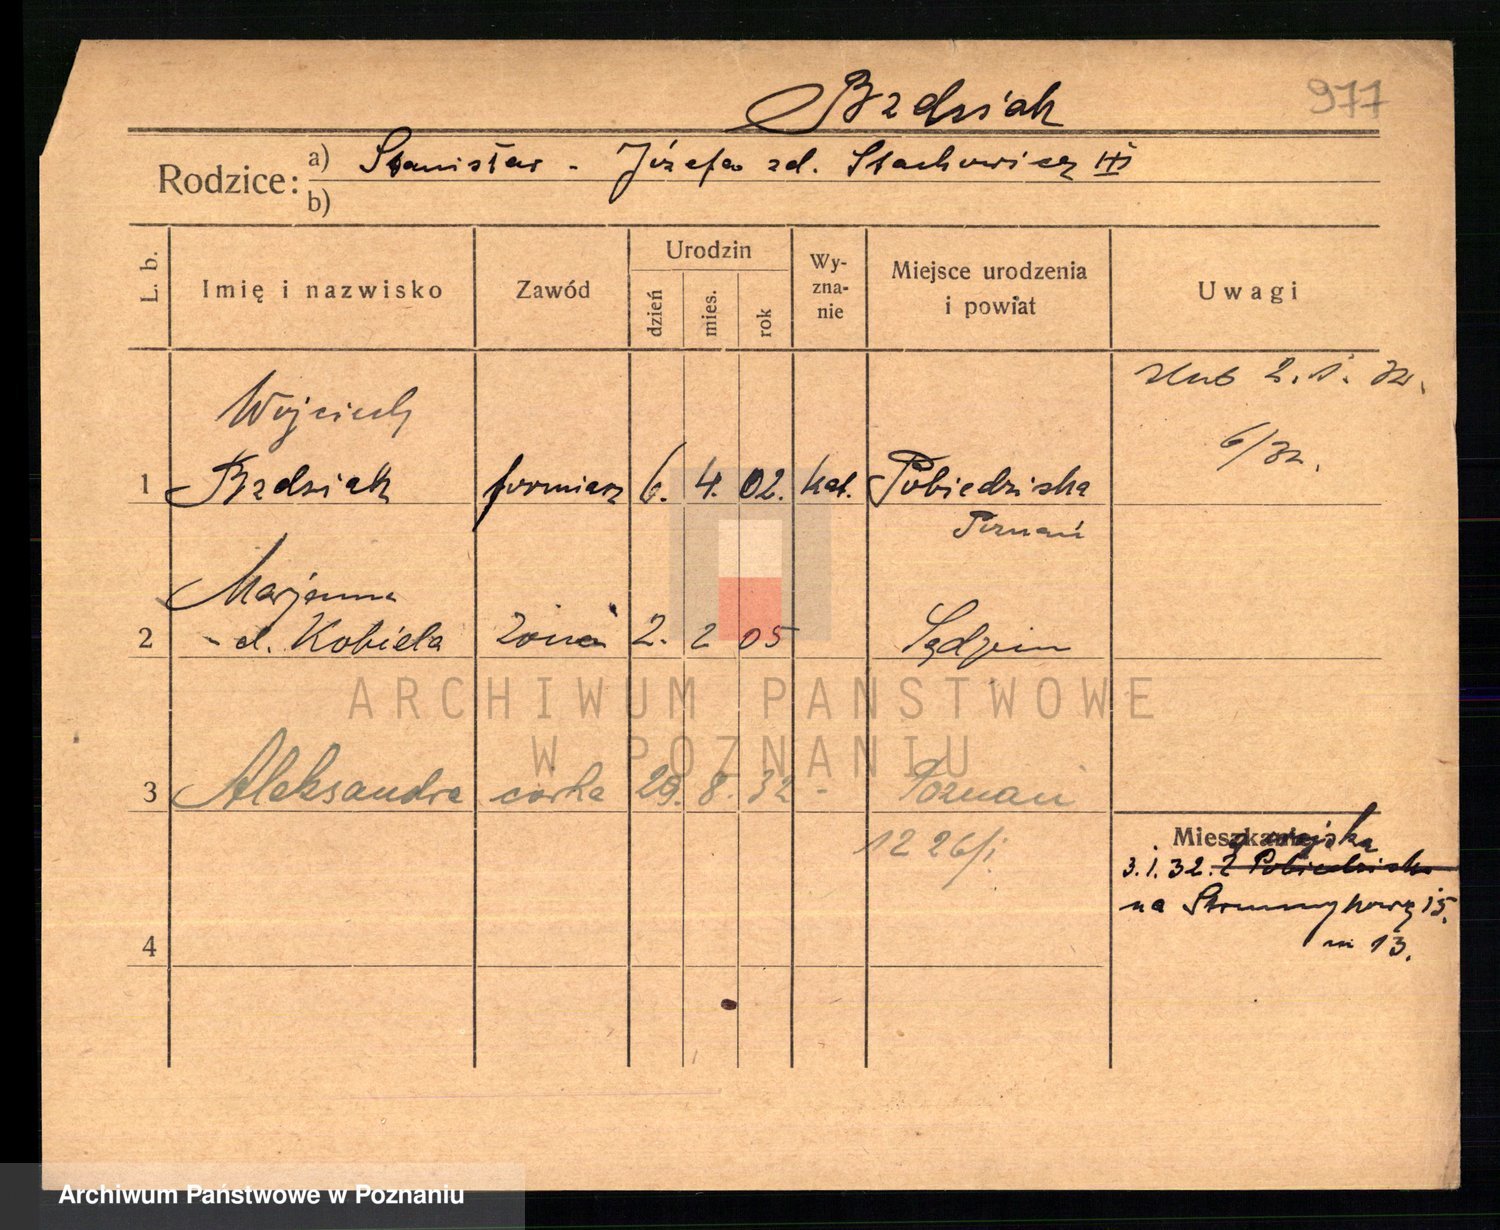 977
Bzdziak
Rodzice:
a) Stanisław - Józefa zd. Stachowicz
b)
L. b.
Imię i nazwisko
Zawód
Urodzin
dzień
mies.
rok
Wy-
zna-
nie
Miejsce urodzenia
i powiat
Uwagi
ślub 2. 1. 32.
6/32.
Wojciech
1 Bzdziak formierz 6. 4. 02. kat. Pobiedziska
Poznań
Marjanna
2 zd. Kobiela żona 2. 2 05
3 Aleksandra córka 29. 8. 32 - Poznań
Mieszkanie
3. 1. 32. z Pobiedzisk
na 15.
m 13.
4
ARCHIWUM PAŃSTWOWE
W POZNANIU
Archiwum Państwowe w Poznaniu